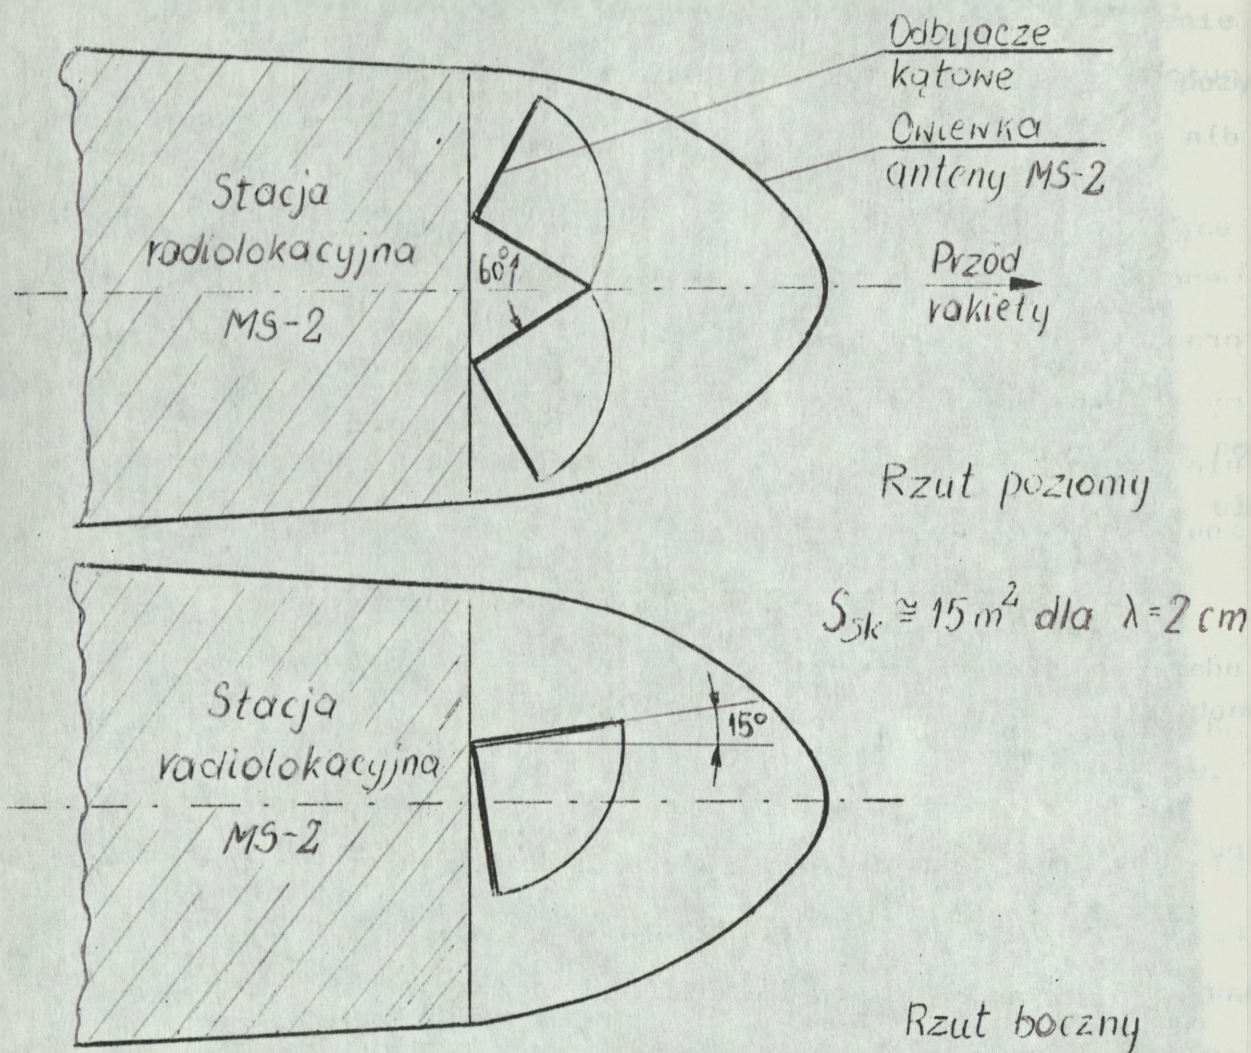 Odbijacze
kątowe
Owiewka
anteny MS-2
Stacja
radiolokacyjna
MS-2
60°
Przód
rakiety
Rzut poziomy
S_sk ≅ 15 m² dla λ=2 cm
Stacja
radiolokacyjna
MS-2
15°
Rzut boczny